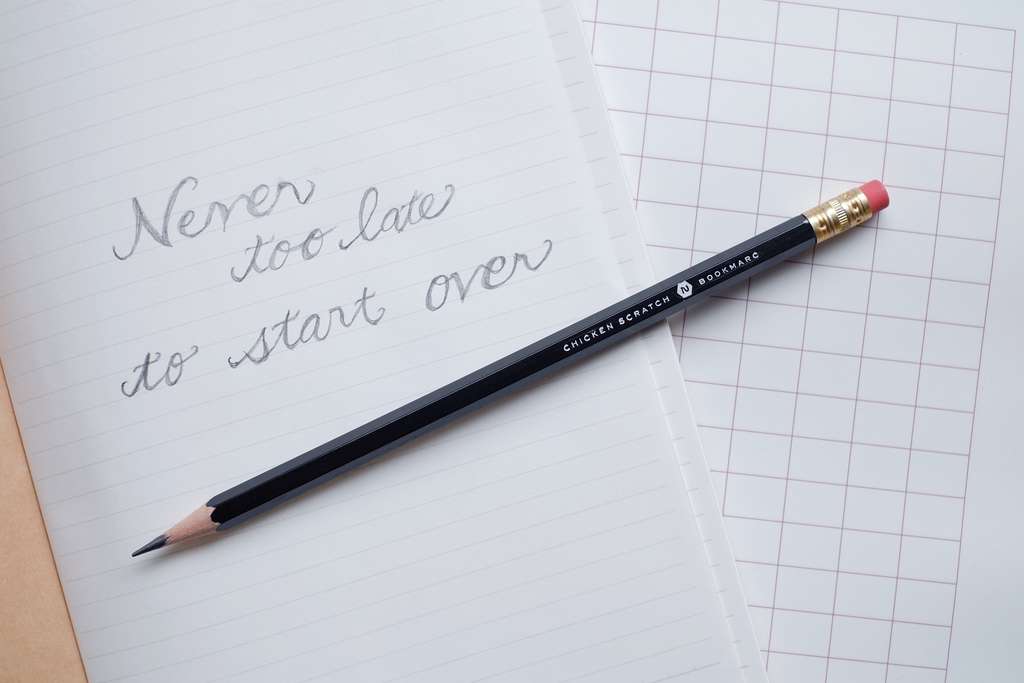 Never
too late
to start over
CHICKEN SCRATCH N BOOKMARC